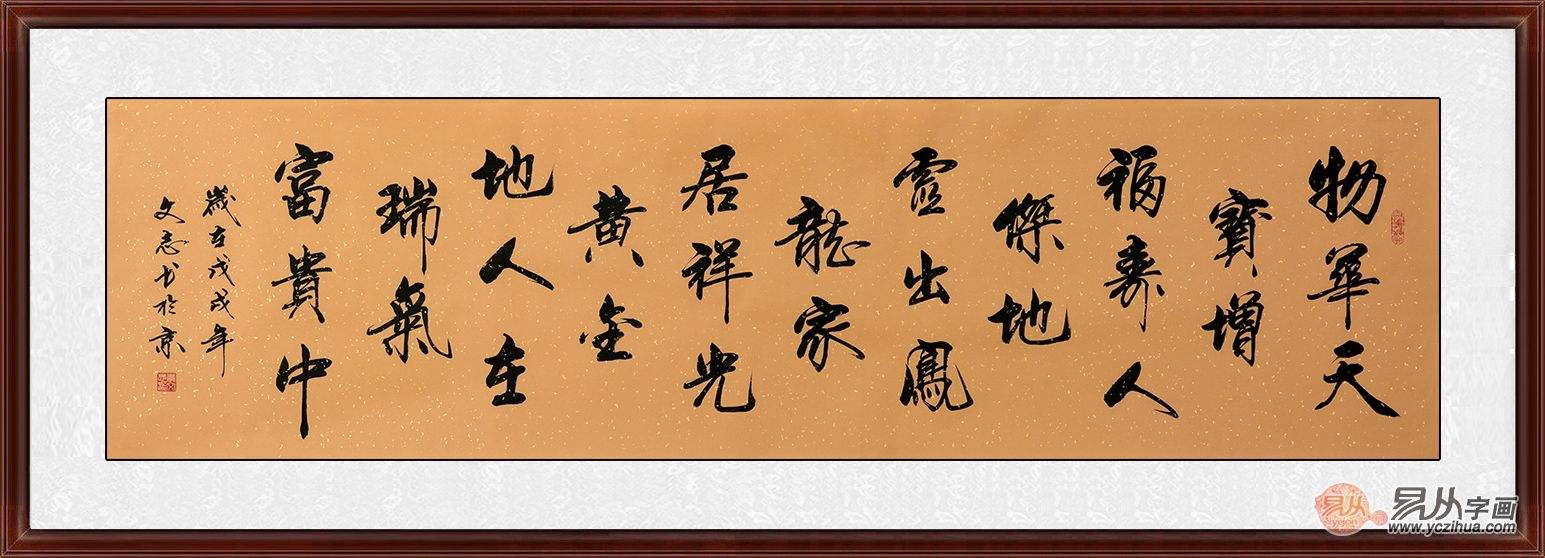 物華天
寶增
福壽人
傑地
靈出鳳
龍家
居祥光
黃金
地人在
瑞氣
富貴中
歲在戊戌年
文志书於京
易从字画
yejon
www.yczihua.com